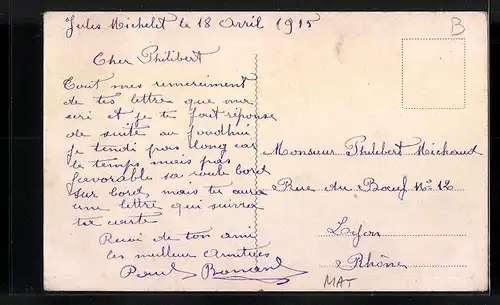 Jules Michelet le 18 Avril 1915
B
Cher Philibert
Tout mes remerciment
de tes lettre que me
seri et je te fait réponse
de suite au joudhui
je tendi pas long car
le temps mais pas
favorable sa roule bord
sur bord mais tu aura
une lettre qui suivra
ta carte
Recoi de ton ami
les meilleur Amitiées
Paul Bonand
Monsieur Philibert Michaud
Rue du Bœuf N° 12
Lyon
Rhône
MAT